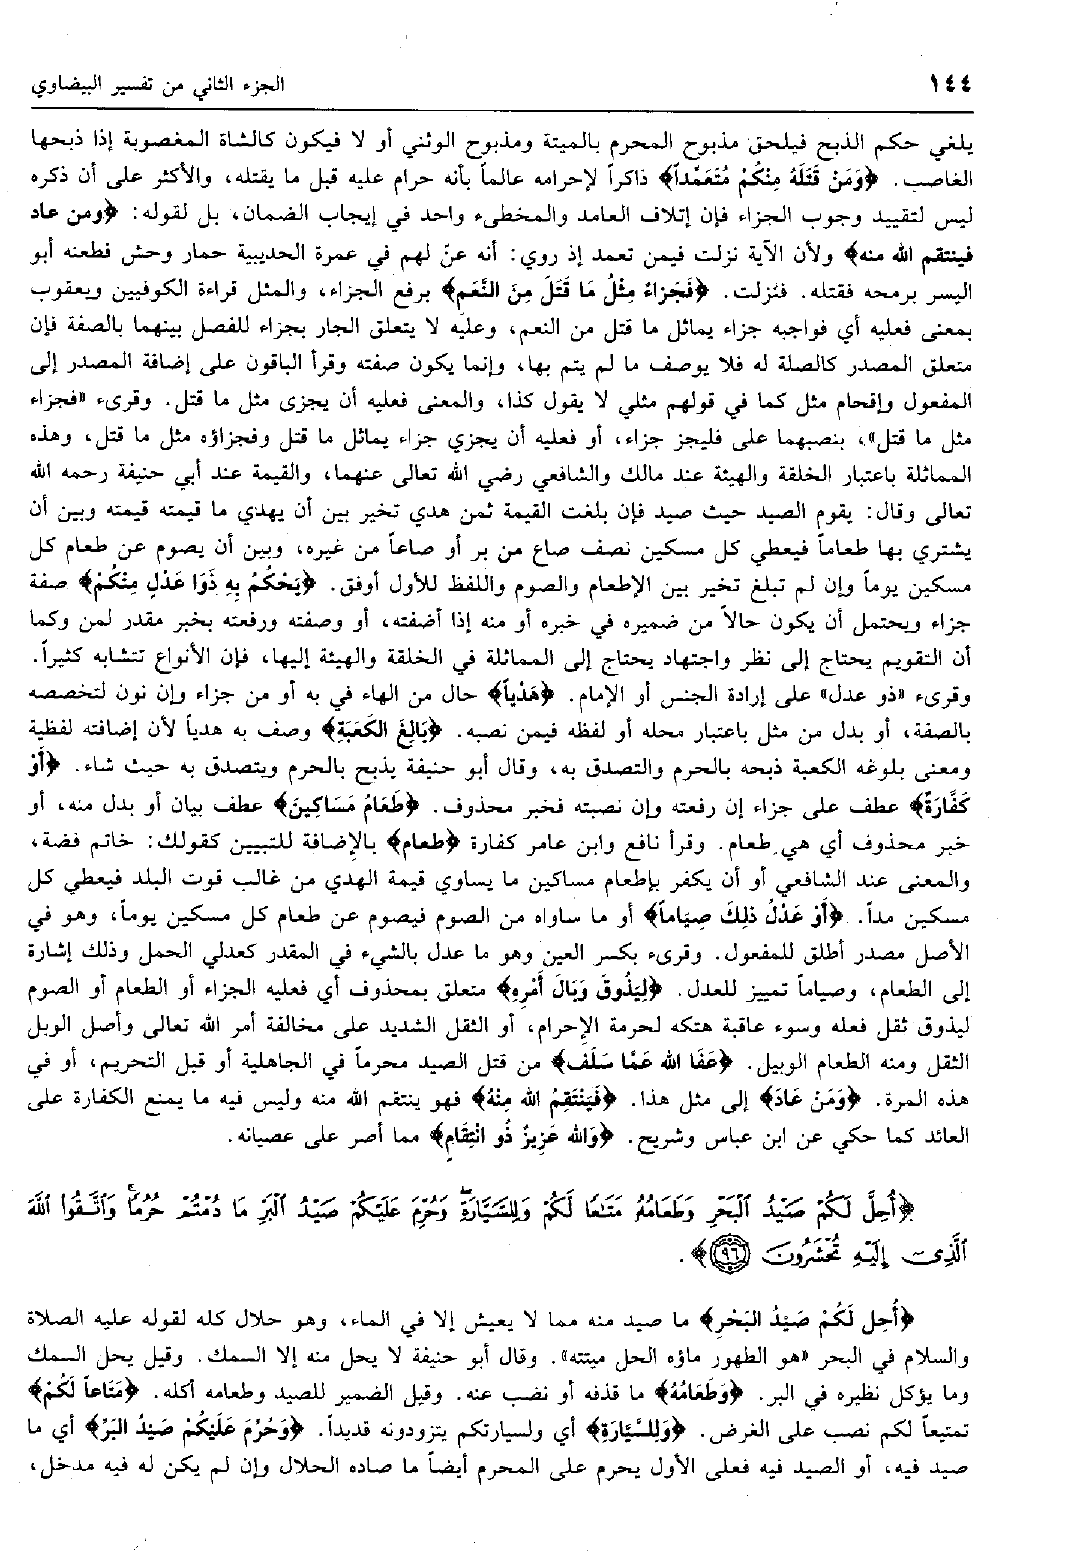 ١٤٤
الجزء الثاني من تفسير البيضاوي
يلغي حكم الذبح فيلحق مذبوح المحرم بالميتة ومذبوح الوثني أو لا فيكون كالشاة المغصوبة إذا ذبحها
الغاصب. ﴿وَمَنْ قَتَلَهُ مِنْكُمْ مُتَعَمِّداً﴾ ذاكراً لإحرامه عالماً بأنه حرام عليه قبل ما يقتله، والأكثر على أن ذكره
ليس لتقييد وجوب الجزاء فإن إتلاف العامد والمخطىء واحد في إيجاب الضمان، بل لقوله: ﴿ومن عاد
فينتقم الله منه﴾ ولأن الآية نزلت فيمن تعمد إذ روي: أنه عنّ لهم في عمرة الحديبية حمار وحش فطعنه أبو
اليسر برمحه فقتله. فنزلت. ﴿فَجَزَاءٌ مِثْلُ مَا قَتَلَ مِنَ النَّعَمِ﴾ برفع الجزاء، والمثل قراءة الكوفيين ويعقوب
بمعنى فعليه أي فواجبه جزاء يماثل ما قتل من النعم، وعليه لا يتعلق الجار بجزاء للفصل بينهما بالصفة فإن
متعلق المصدر كالصلة له فلا يوصف ما لم يتم بها، وإنما يكون صفته وقرأ الباقون على إضافة المصدر إلى
المفعول وإقحام مثل كما في قولهم مثلي لا يقول كذا، والمعنى فعليه أن يجزى مثل ما قتل. وقرىء «فجزاء
مثل ما قتل»، بنصبهما على فليجز جزاء، أو فعليه أن يجزي جزاء يماثل ما قتل وفجزاؤه مثل ما قتل، وهذه
المماثلة باعتبار الخلقة والهيئة عند مالك والشافعي رضي الله تعالى عنهما، والقيمة عند أبي حنيفة رحمه الله
تعالى وقال: يقوم الصيد حيث صيد فإن بلغت القيمة ثمن هدي تخير بين أن يهدي ما قيمته قيمته وبين أن
يشتري بها طعاماً فيعطي كل مسكين نصف صاع من بر أو صاعاً من غيره، وبين أن يصوم عن طعام كل
مسكين يوماً وإن لم تبلغ تخير بين الإطعام والصوم واللفظ للأول أوفق. ﴿يَحْكُمُ بِهِ ذَوَا عَدْلٍ مِنْكُمْ﴾ صفة
جزاء ويحتمل أن يكون حالاً من ضميره في خبره أو منه إذا أضفته، أو وصفته ورفعته بخبر مقدر لمن وكما
أن التقويم يحتاج إلى نظر واجتهاد يحتاج إلى المماثلة في الخلقة والهيئة إليها، فإن الأنواع تتشابه كثيراً.
وقرىء «ذو عدل» على إرادة الجنس أو الإمام. ﴿هَدْياً﴾ حال من الهاء في به أو من جزاء وإن نون لتخصصه
بالصفة، أو بدل من مثل باعتبار محله أو لفظه فيمن نصبه. ﴿بَالِغَ الكَعْبَةِ﴾ وصف به هدياً لأن إضافته لفظية
ومعنى بلوغه الكعبة ذبحه بالحرم والتصدق به، وقال أبو حنيفة يذبح بالحرم ويتصدق به حيث شاء. ﴿أَوْ
كَفَّارَةٌ﴾ عطف على جزاء إن رفعته وإن نصبته فخبر محذوف. ﴿طَعَامُ مَسَاكِينَ﴾ عطف بيان أو بدل منه، أو
خبر محذوف أي هي طعام. وقرأ نافع وابن عامر كفارة ﴿طعام﴾ بالإضافة للتبيين كقولك: خاتم فضة،
والمعنى عند الشافعي أو أن يكفر بإطعام مساكين ما يساوي قيمة الهدي من غالب قوت البلد فيعطي كل
مسكين مداً. ﴿أَوْ عَدْلُ ذَلِكَ صِيَاماً﴾ أو ما ساواه من الصوم فيصوم عن طعام كل مسكين يوماً، وهو في
الأصل مصدر أطلق للمفعول. وقرىء بكسر العين وهو ما عدل بالشيء في المقدر كعدلي الحمل وذلك إشارة
إلى الطعام، وصياماً تمييز للعدل. ﴿لِيَذُوقَ وَبَالَ أَمْرِهِ﴾ متعلق بمحذوف أي فعليه الجزاء أو الطعام أو الصوم
ليذوق ثقل فعله وسوء عاقبة هتكه لحرمة الإحرام، أو الثقل الشديد على مخالفة أمر الله تعالى وأصل الوبل
الثقل ومنه الطعام الوبيل. ﴿عَفَا الله عَمَّا سَلَفَ﴾ من قتل الصيد محرماً في الجاهلية أو قبل التحريم، أو في
هذه المرة. ﴿وَمَنْ عَادَ﴾ إلى مثل هذا. ﴿فَيَنْتَقِمُ الله مِنْهُ﴾ فهو ينتقم الله منه وليس فيه ما يمنع الكفارة على
العائد كما حكي عن ابن عباس وشريح. ﴿وَالله عَزِيزٌ ذُو انْتِقَامٍ﴾ مما أصر على عصيانه.
﴿أُحِلَّ لَكُمْ صَيْدُ ٱلْبَحْرِ وَطَعَامُهُ مَتَٰعًا لَّكُمْ وَلِلسَّيَّارَةِۖ وَحُرِّمَ عَلَيْكُمْ صَيْدُ ٱلْبَرِّ مَا دُمْتُمْ حُرُمًاۗ وَٱتَّقُوا۟ ٱللَّهَ
ٱلَّذِىٓ إِلَيْهِ تُحْشَرُونَ ﴿٩٦﴾﴾.
﴿أُحِلَ لَكُمْ صَيْدُ البَحْرِ﴾ ما صيد منه مما لا يعيش إلا في الماء، وهو حلال كله لقوله عليه الصلاة
والسلام في البحر «هو الطهور ماؤه الحل ميتته». وقال أبو حنيفة لا يحل منه إلا السمك. وقيل يحل السمك
وما يؤكل نظيره في البر. ﴿وَطَعَامُهُ﴾ ما قذفه أو نضب عنه. وقيل الضمير للصيد وطعامه أكله. ﴿مَتَاعاً لَكُمْ﴾
تمتيعاً لكم نصب على الغرض. ﴿وَلِلسَّيَّارَةِ﴾ أي ولسيارتكم يتزودونه قديداً. ﴿وَحُرِّمَ عَلَيْكُمْ صَيْدُ البَرِّ﴾ أي ما
صيد فيه، أو الصيد فيه فعلى الأول يحرم على المحرم أيضاً ما صاده الحلال وإن لم يكن له فيه مدخل،